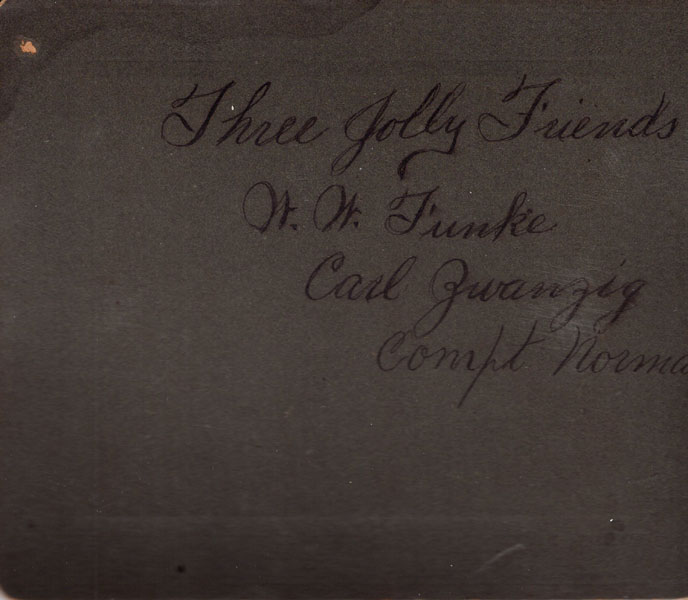 Three Jolly Friends
W. W. Funke
Carl Zwanzig
Compt Norma